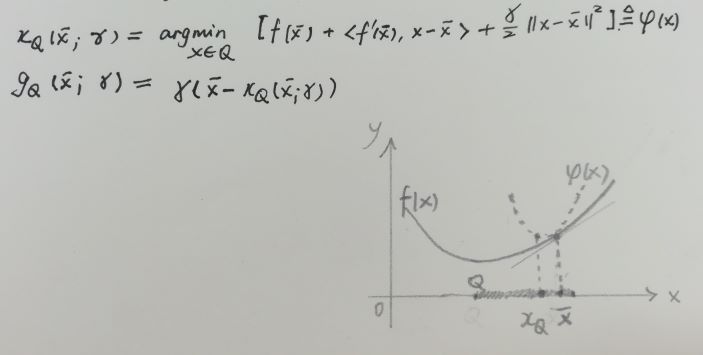 x_Q(x̄; γ) = argmin_{x∈Q} [f(x̄) + <f'(x̄), x-x̄> + γ/2 ||x-x̄||²] ≜ φ(x)
g_Q(x̄; γ) = γ(x̄ - x_Q(x̄;γ))
y
φ(x)
f(x)
Q
0 x_Q x̄ x